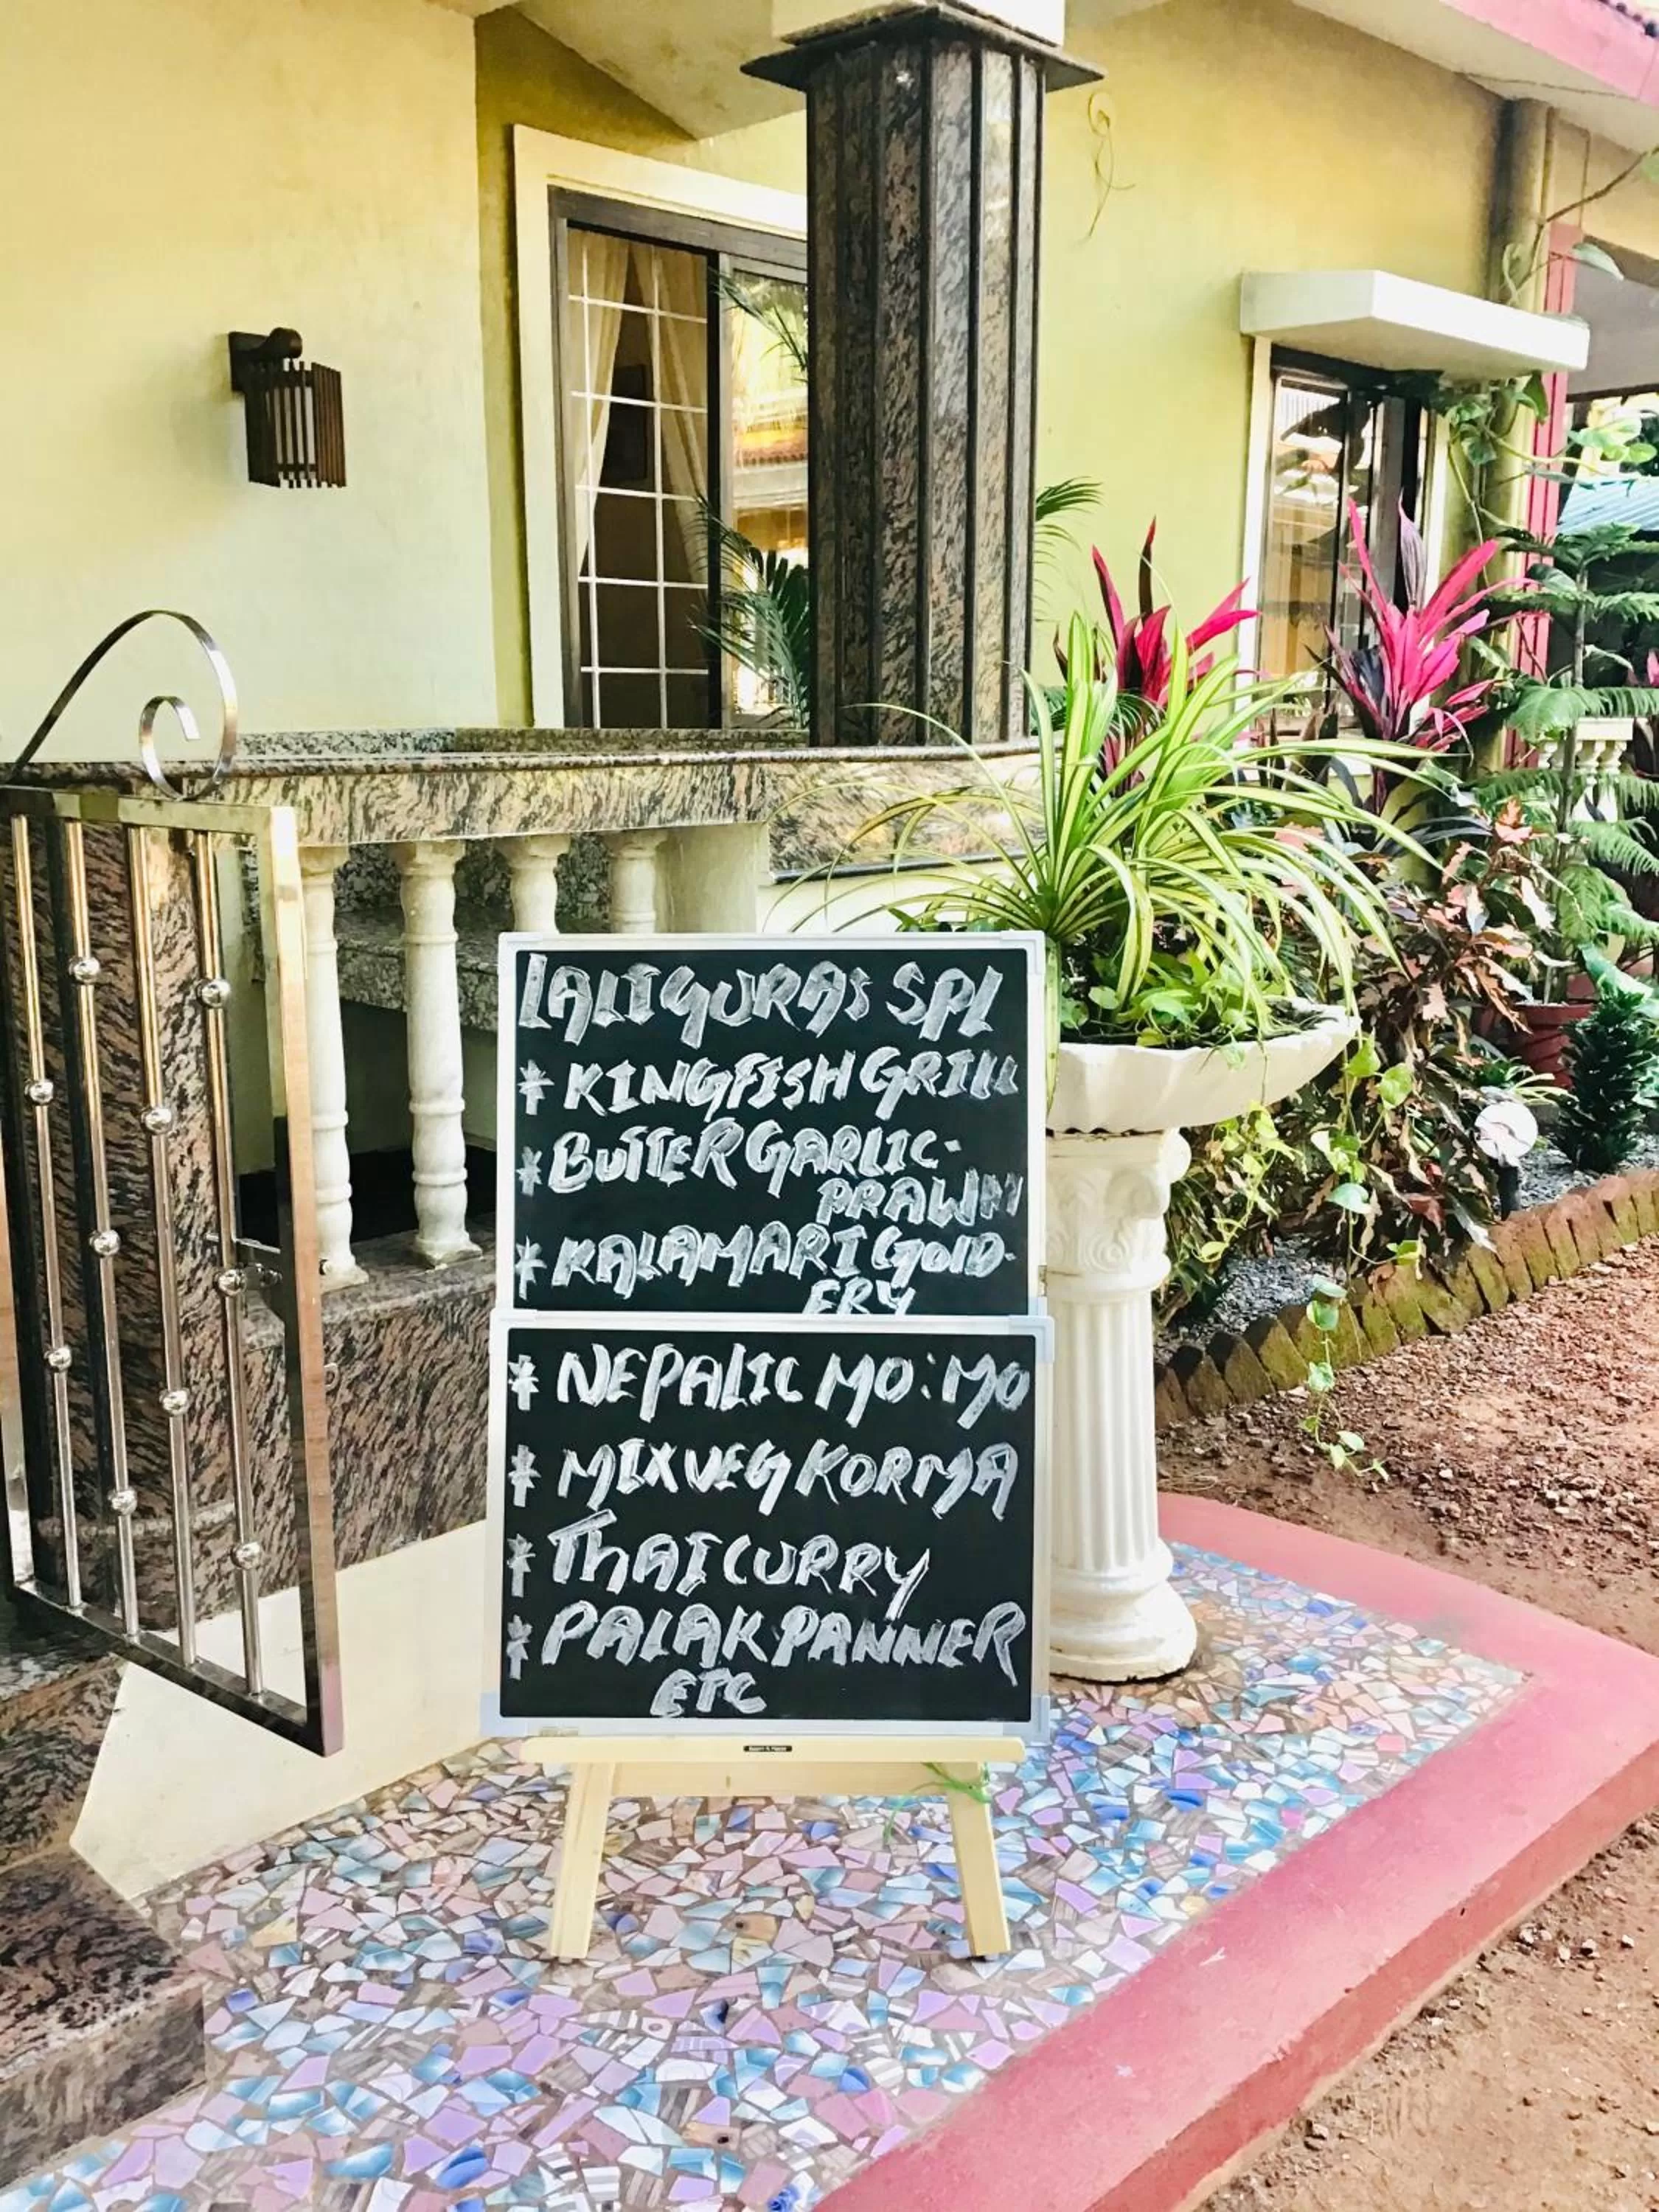 LALIGURAS SPL
* KINGFISH GRILL
* BUTTER GARLIC-
PRAWN
* KALAMARI GOLD-
ERY
* NEPALIC MO:MO
* MIX VEG KORMA
* THAI CURRY
* PALAK PANNER
ETC